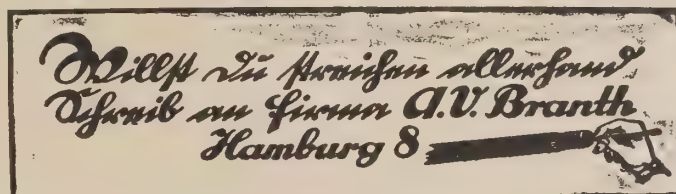 Willst du streichen allerhand
Schreib an Firma A.V. Branth
Hamburg 8